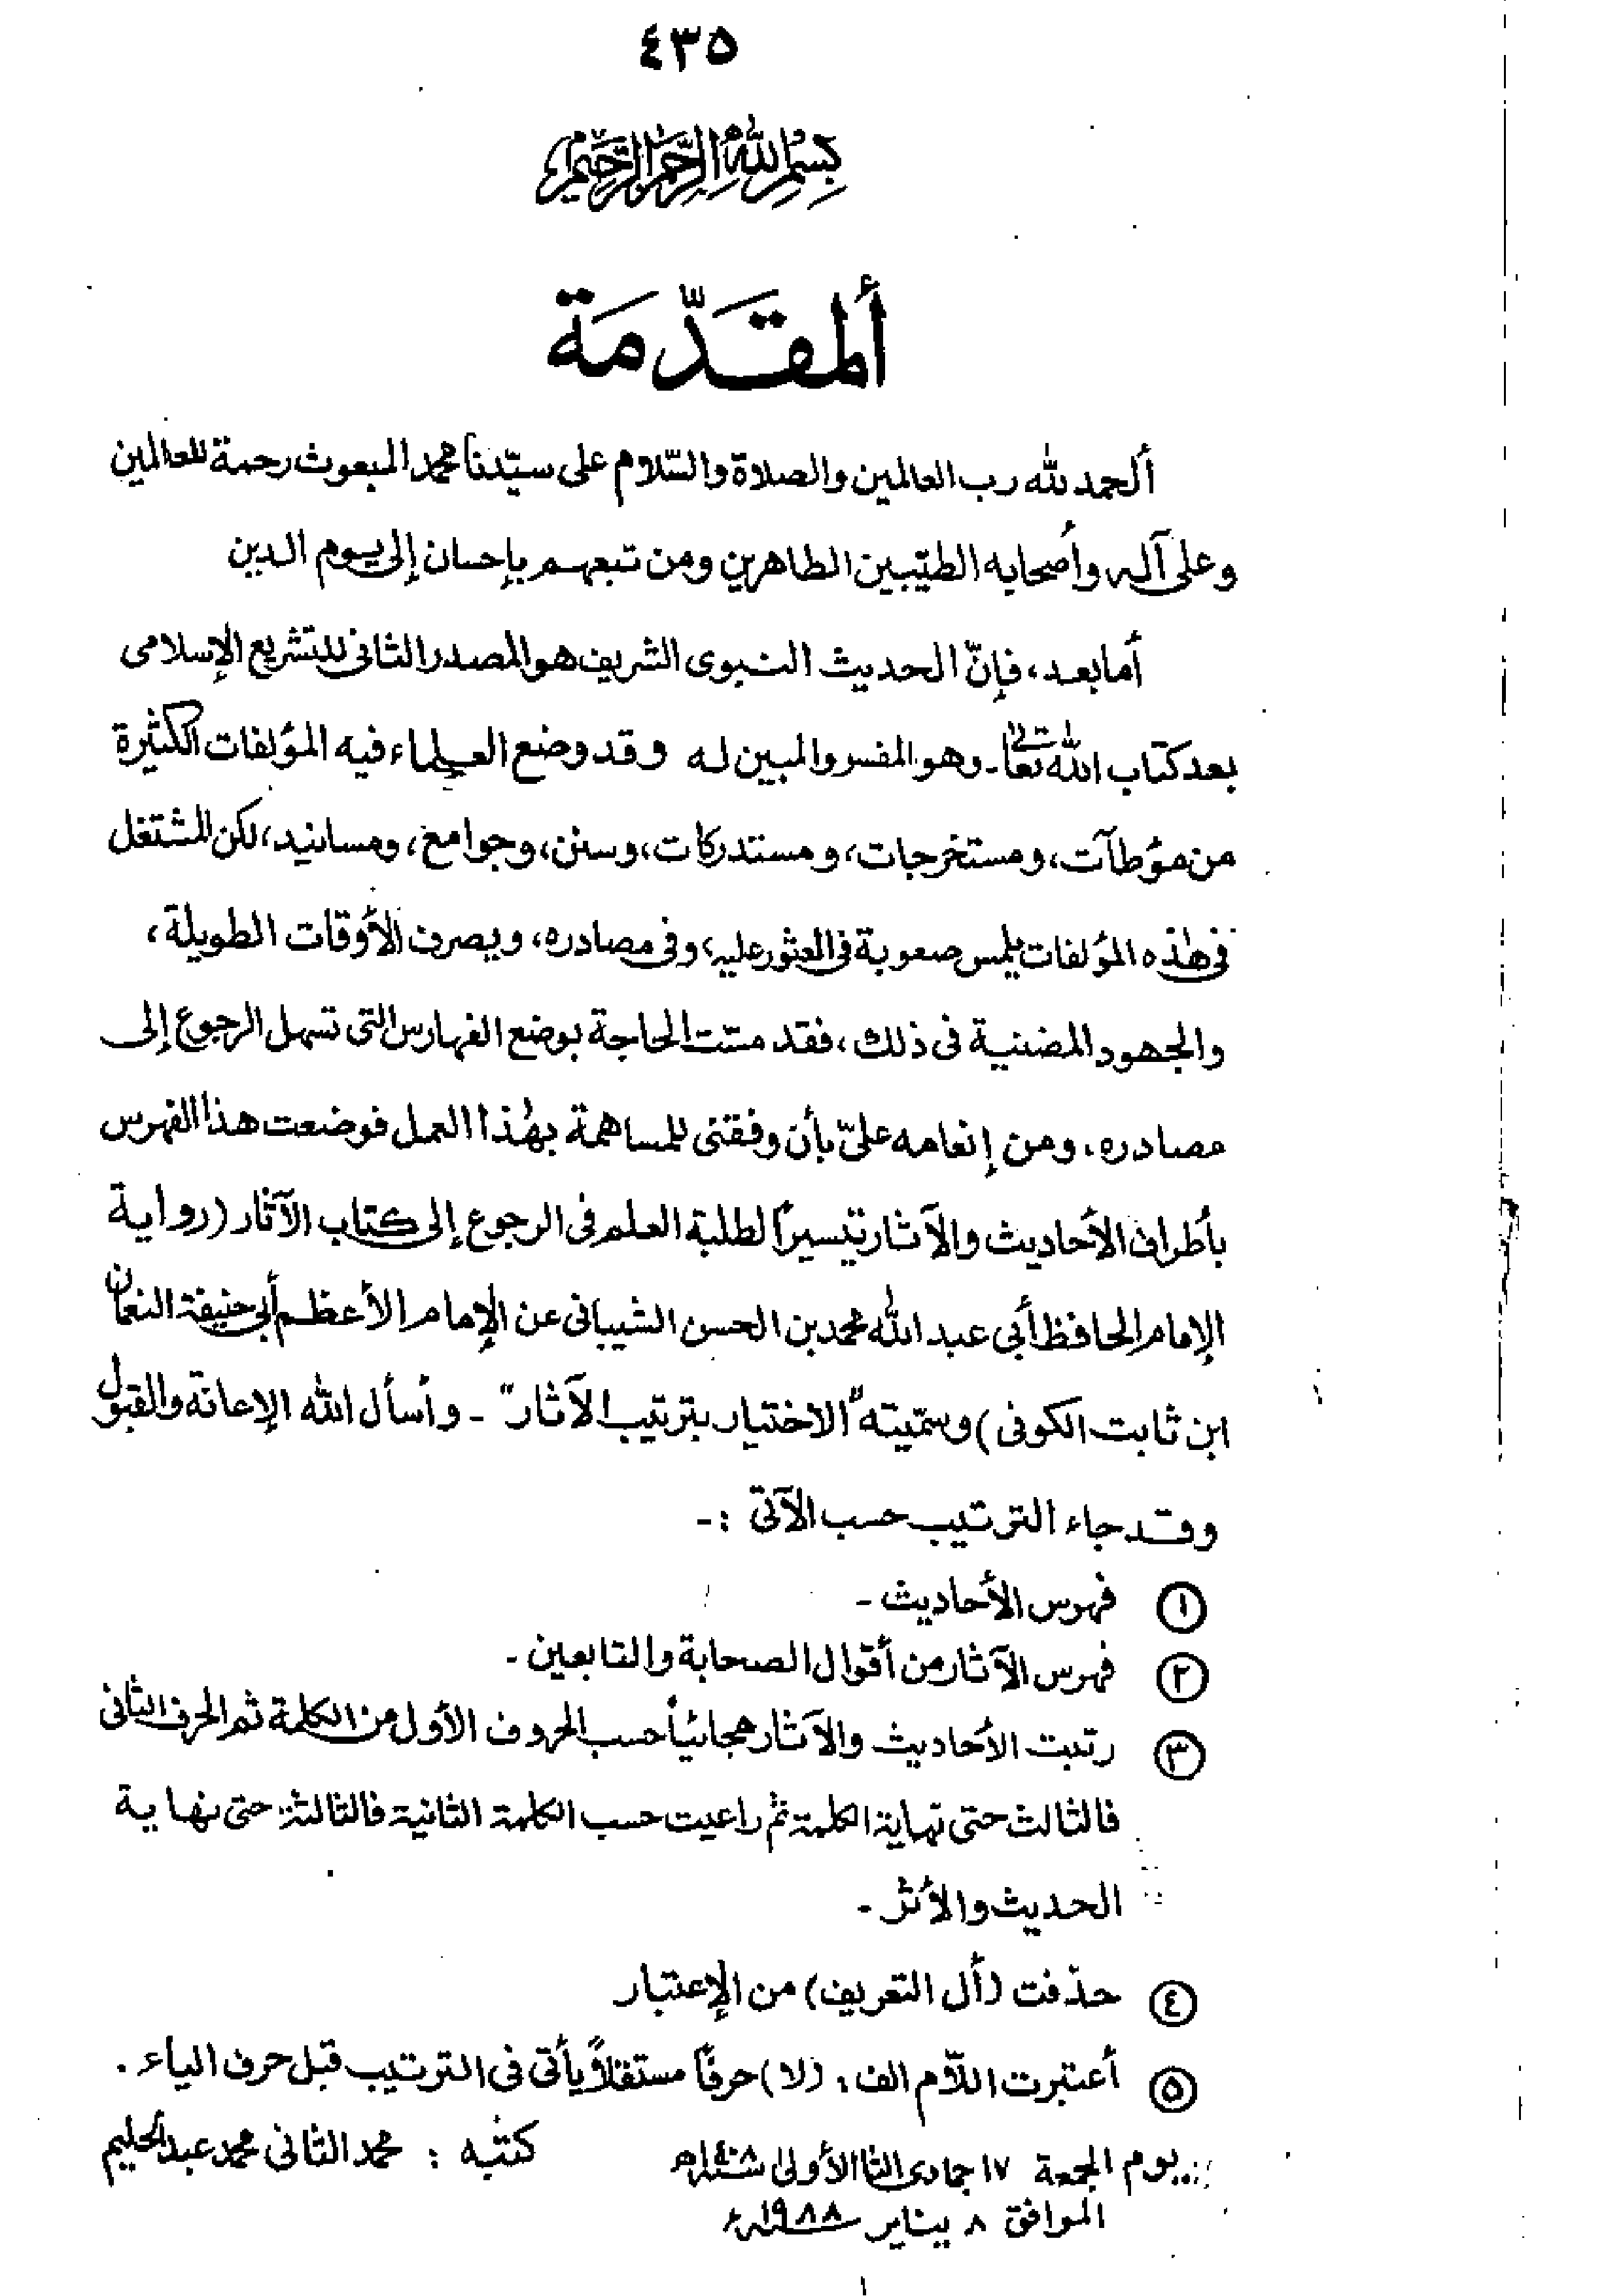 ٤٣٥
بسم الله الرحمن الرحيم
ألمقدّمة
ألحمد لله رب العالمين والصلاة والسّلام على سيّدنا محمد المبعوث رحمة للعالمين
وعلى آله وأصحابه الطيّبين الطاهرين ومن تبعهم بإحسان إلى يوم الدين
أما بعد، فإنّ الحديث النبوى الشريف هو المصدر الثانى للتشريع الإسلامى
بعد كتاب الله تعالى - وهو المفسر والمبين له وقد وضع العلماء فيه المؤلفات الكثيرة
من مؤطآت، ومستخرجات، ومستدركات، وسنن، وجوامع، ومسانيد، لكن المشتغل
فى هذه المؤلفات يلمس صعوبة فى العثور عليه، وفى مصادره، ويصرف الأوقات الطويلة،
والجهود المضنية فى ذلك، فقد مسّت الحاجة بوضع الفهارس التى تسهل الرجوع إلى
مصادره. ومن إنعامه علىّ بأن وفقنى للمساهمة بهٰذا العمل فوضعت هذا الفهرس
بأطراف الأحاديث والآثار تيسيراً لطلبة العلم فى الرجوع إلى كتاب الآثار (رواية
الإمام الحافظ أبى عبد الله محمد بن الحسن الشيبانى عن الإمام الأعظم أبى حنيفة النعمان
ابن ثابت الكوفى) وسمّيته "الاختيار بترتيب الآثار" - وأسأل الله الإعانة والقبول
وقد جاء الترتيب حسب الآتى :-
١ فهرس الأحاديث -
٢ فهرس الآثار من أقوال الصحابة والتابعين -
٣ رتبت الأحاديث والآثار هجائياً حسب الحروف الأول من الكلمة ثم الحرف الثانى
فالثالث حتى نهاية الكلمة ثم راعيت حسب الكلمة الثانية فالثالثة حتى نهاية
الحديث والأثر -
٤ حذفت (أل التعريف) من الإعتبار
٥ أعتبرت اللّام الف، (لا) حرفًا مستقلاً يأتى فى الترتيب قبل حرف الياء.
يوم الجمعة ١٧ جمادى الأولى سنة ١٤٠٨هـ كتبه : محمد الثانى محمد عبد الحليم
الموافق ٨ يناير سنة ١٩٨٨ء